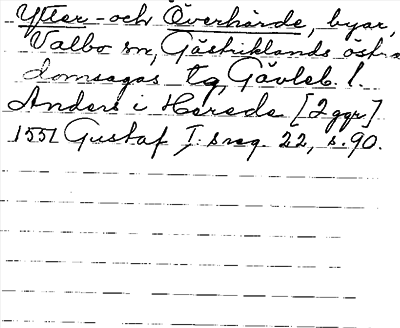 Ytter- och Överhärde, byar,
Valbo sn, Gästriklands östra
domsagas tg, Gävleb. l.
Anders i Herede [2 ggr]
1551 Gustaf I: s reg. 22, s. 90.